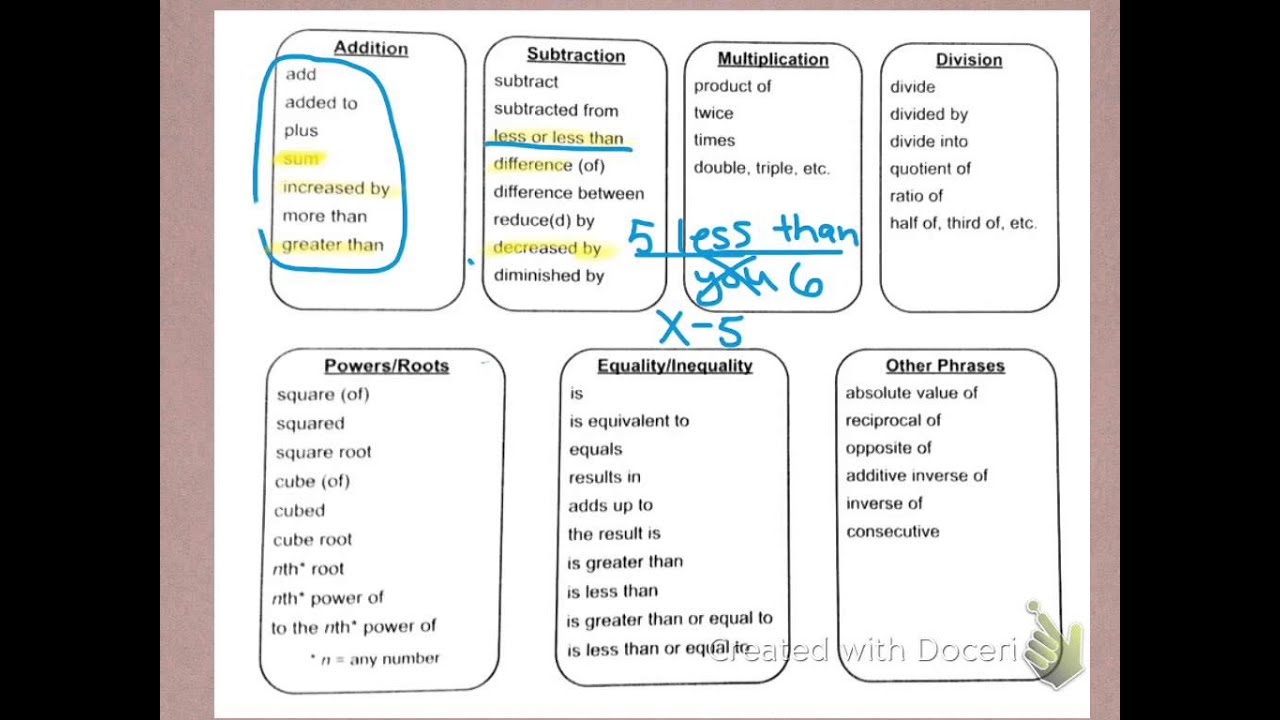 Addition
add
added to
plus
sum
increased by
more than
greater than
Subtraction
subtract
subtracted from
less or less than
difference (of)
difference between
reduce(d) by
decreased by
diminished by
Multiplication
product of
twice
times
double, triple, etc.
Division
divide
divided by
divide into
quotient of
ratio of
half of, third of, etc.
5 less than
you 6
X-5
Powers/Roots
square (of)
squared
square root
cube (of)
cubed
cube root
nth* root
nth* power of
to the nth* power of
* n = any number
Equality/Inequality
is
is equivalent to
equals
results in
adds up to
the result is
is greater than
is less than
is greater than or equal to
is less than or equal to
Other Phrases
absolute value of
reciprocal of
opposite of
additive inverse of
inverse of
consecutive
Created with Doceri